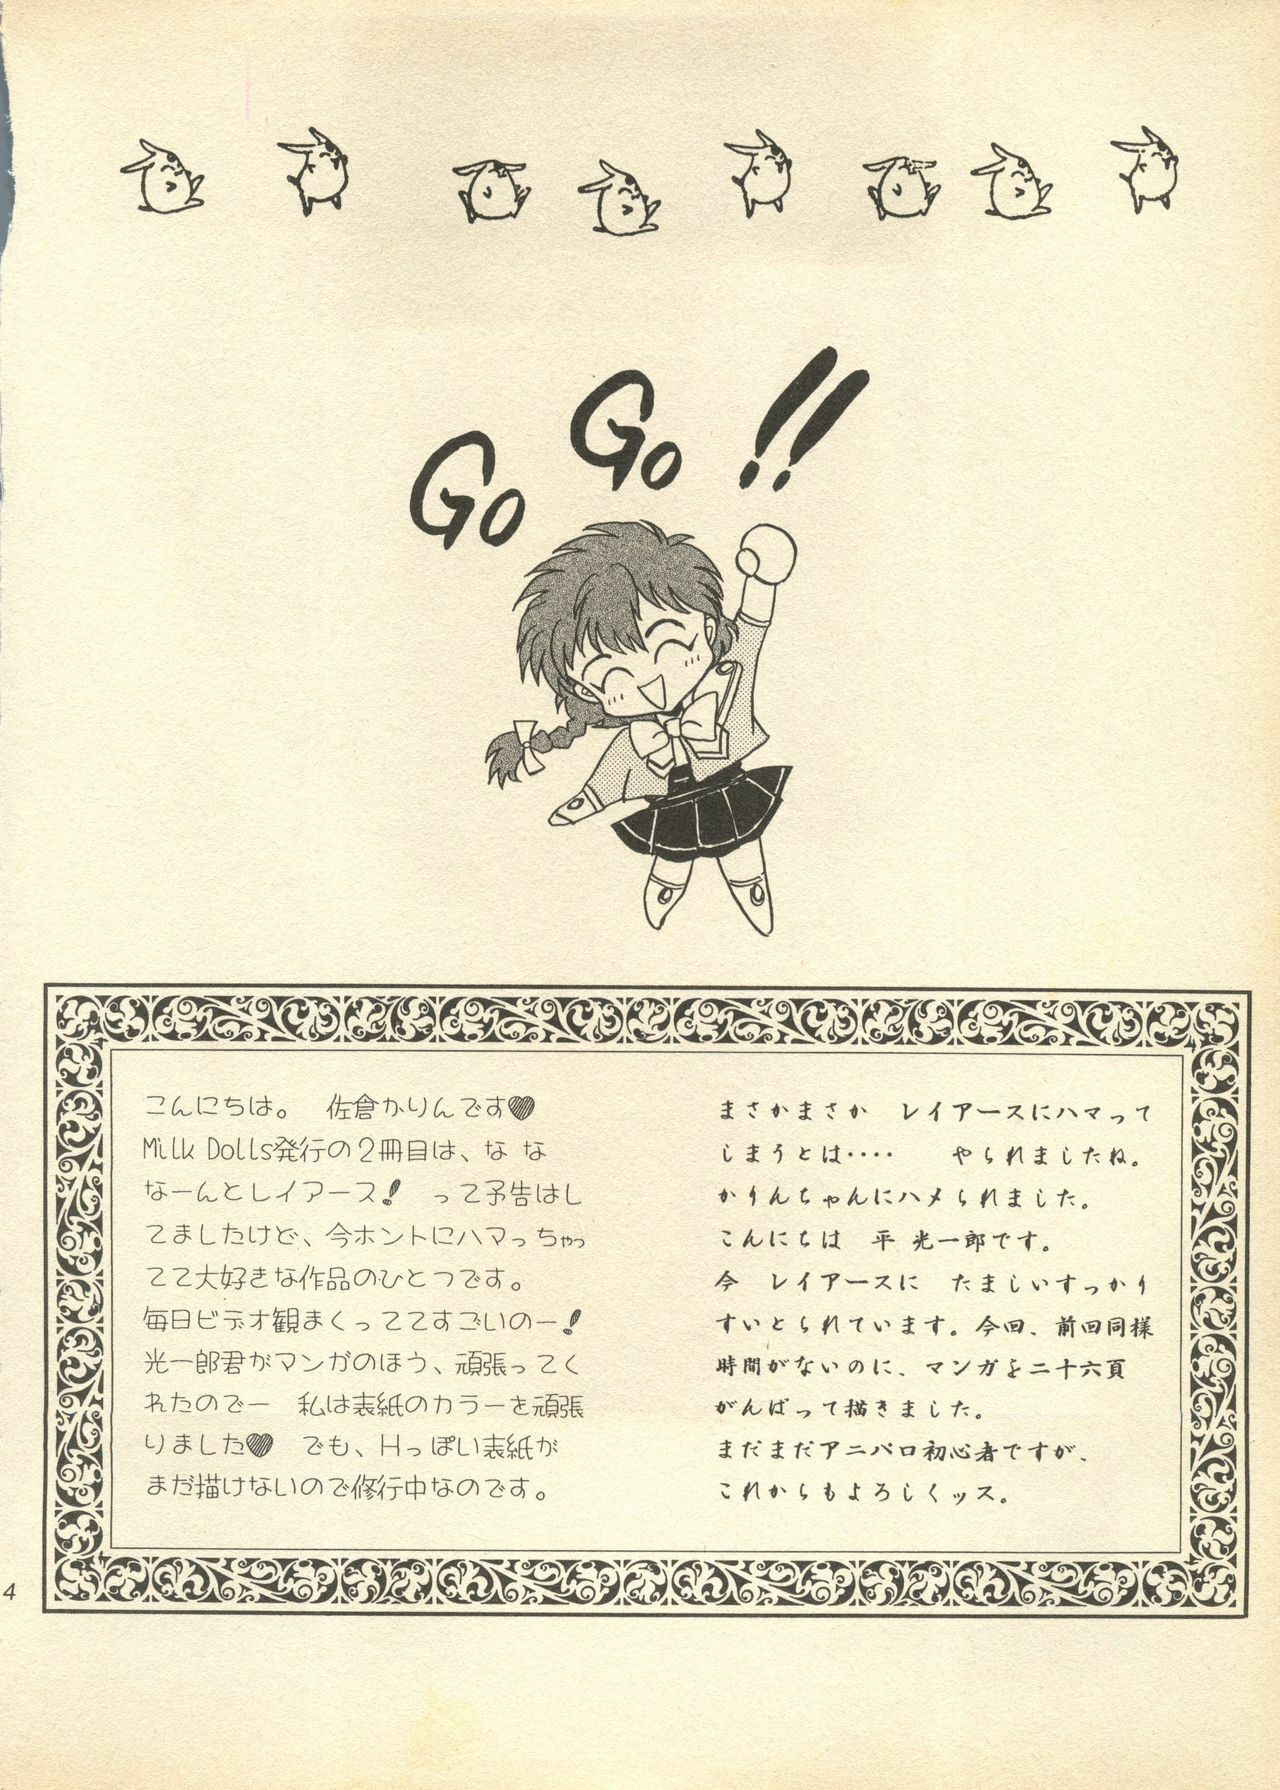 Go Go!!
こんにちは。 佐倉かりんです♥
Milk Dolls発行の2冊目は、な な
なーんとレイアース! って予告はし
てましたけど、今ホントにハマっちゃっ
てて大好きな作品のひとつです。
毎日ビデオ観まくっててすごいのー!
光一郎君がマンガのほう、頑張ってく
れたのでー 私は表紙のカラーを頑張
りました♥ でも、Hっぽい表紙が
まだ描けないので修行中なのです。
まさかまさか レイアースにハマって
しまうとは‥‥ やられましたね。
かりんちゃんにハメられました。
こんにちは 平 光一郎です。
今 レイアースに たましいすっかり
すいとられています。今回、前回同様
時間がないのに、マンガを二十六頁
がんばって描きました。
まだまだアニパロ初心者ですが、
これからもよろしくッス。
4